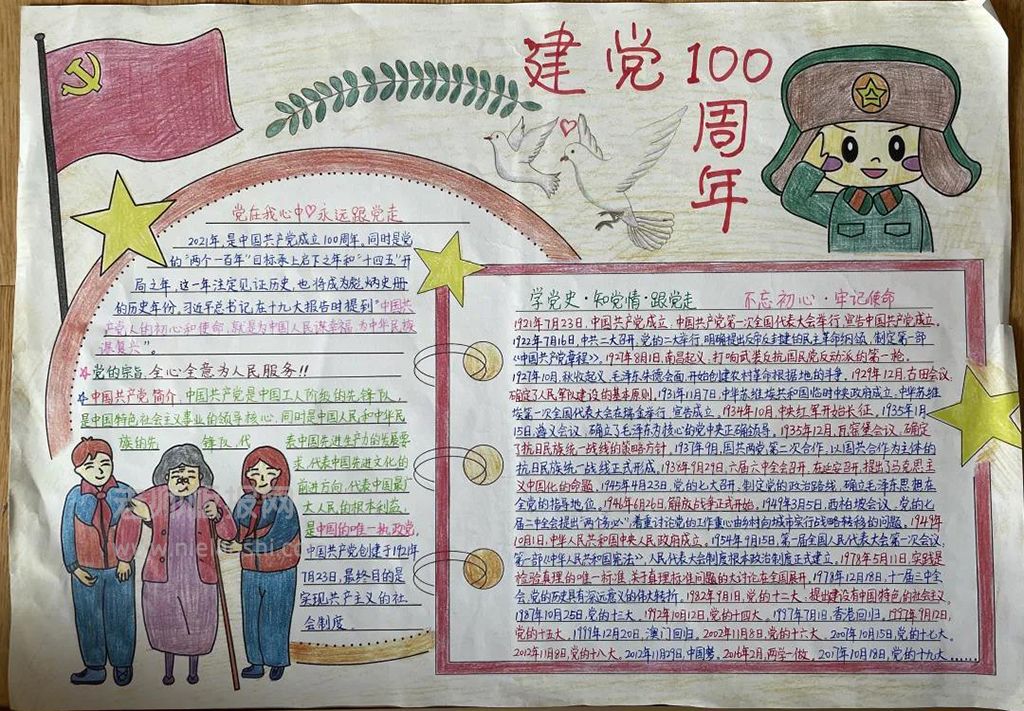 建党100
周年
党在我心中♡永远跟党走
2021年,是中国共产党成立100周年。同时是党
的"两个一百年"目标承上启下之年和"十四五"开
局之年,这一年注定见证历史,也将成为彪炳史册
的历史年份。习近平总书记在十九大报告时提到"中国共
产党人的初心和使命,就是为中国人民谋幸福,为中华民族
谋复兴"。
党的宗旨:全心全意为人民服务!!
中国共产党简介:中国共产党是中国工人阶级的先锋队,
是中国特色社会主义事业的领导核心,同时是中国人民和中华民
族的先 锋队,代 表中国先进生产力的发展要
求,代表中国先进文化的
前进方向,代表中国最广
大人民的根本利益,
是中国的唯一执政党,
中国共产党创建于1921年
7月23日,最终目的是
实现共产主义的社
会制度。
学党史·知党情·跟党走 不忘初心·牢记使命
1921年7月23日,中国共产党成立,中国共产党第一次全国代表大会举行,宣告中国共产党成立。
1922年7月16日,中共二大召开,党的二大举行,明确提出反帝反封建的民主革命纲领,制定第一部
《中国共产党章程》。1927年8月1日,南昌起义,打响武装反抗国民党反动派的第一枪。
1927年10月,秋收起义,毛泽东朱德会面,开始创建农村革命根据地的斗争。1929年12月,古田会议,
确定了人民军队建设的基本原则。1931年11月7日,中华苏维埃共和国临时中央政府成立,中华苏维
埃第一次全国代表大会在瑞金举行,宣告成立。1934年10月,中央红军开始长征。1935年1月
15日,遵义会议,确立了毛泽东为核心的党中央正确领导。1935年12月,瓦窑堡会议,确定
了抗日民族统一战线的策略方针。1937年9月,国共两党第二次合作,以国共合作为主体的
抗日民族统一战线正式形成。1938年9月29日,六届六中全会召开,在延安召开,提出了马克思主
义中国化的命题。1945年4月23日,党的七大召开,制定党的政治路线,确立毛泽东思想在
全党的指导地位。1946年6月26日,解放战争正式开始。1949年3月5日,西柏坡会议,党的七
届二中全会提出"两个务必",着重讨论党的工作重心由乡村向城市实行战略转移的问题。1949年
10月1日,中华人民共和国中央人民政府成立。1954年9月15日,第一届全国人民代表大会第一次会议,
第一部《中华人民共和国宪法》,人民代表大会制度根本政治制度正式建立。1978年5月11日,实践是
检验真理的唯一标准,关于真理标准问题的大讨论在全国展开。1978年12月18日,十一届三中全
会,党的历史具有深远意义的伟大转折。1982年9月1日,党的十二大,提出建设有中国特色的社会主义。
1987年10月25日,党的十三大。1992年10月12日,党的十四大。1997年7月1日,香港回归。1997年9月12日,
党的十五大。1999年12月20日,澳门回归。2002年11月8日,党的十六大。2007年10月15日,党的十七大。
2012年11月8日,党的十八大。2012年11月29日,中国梦。2016年2月,两学一做。2017年10月18日,党的十九大......